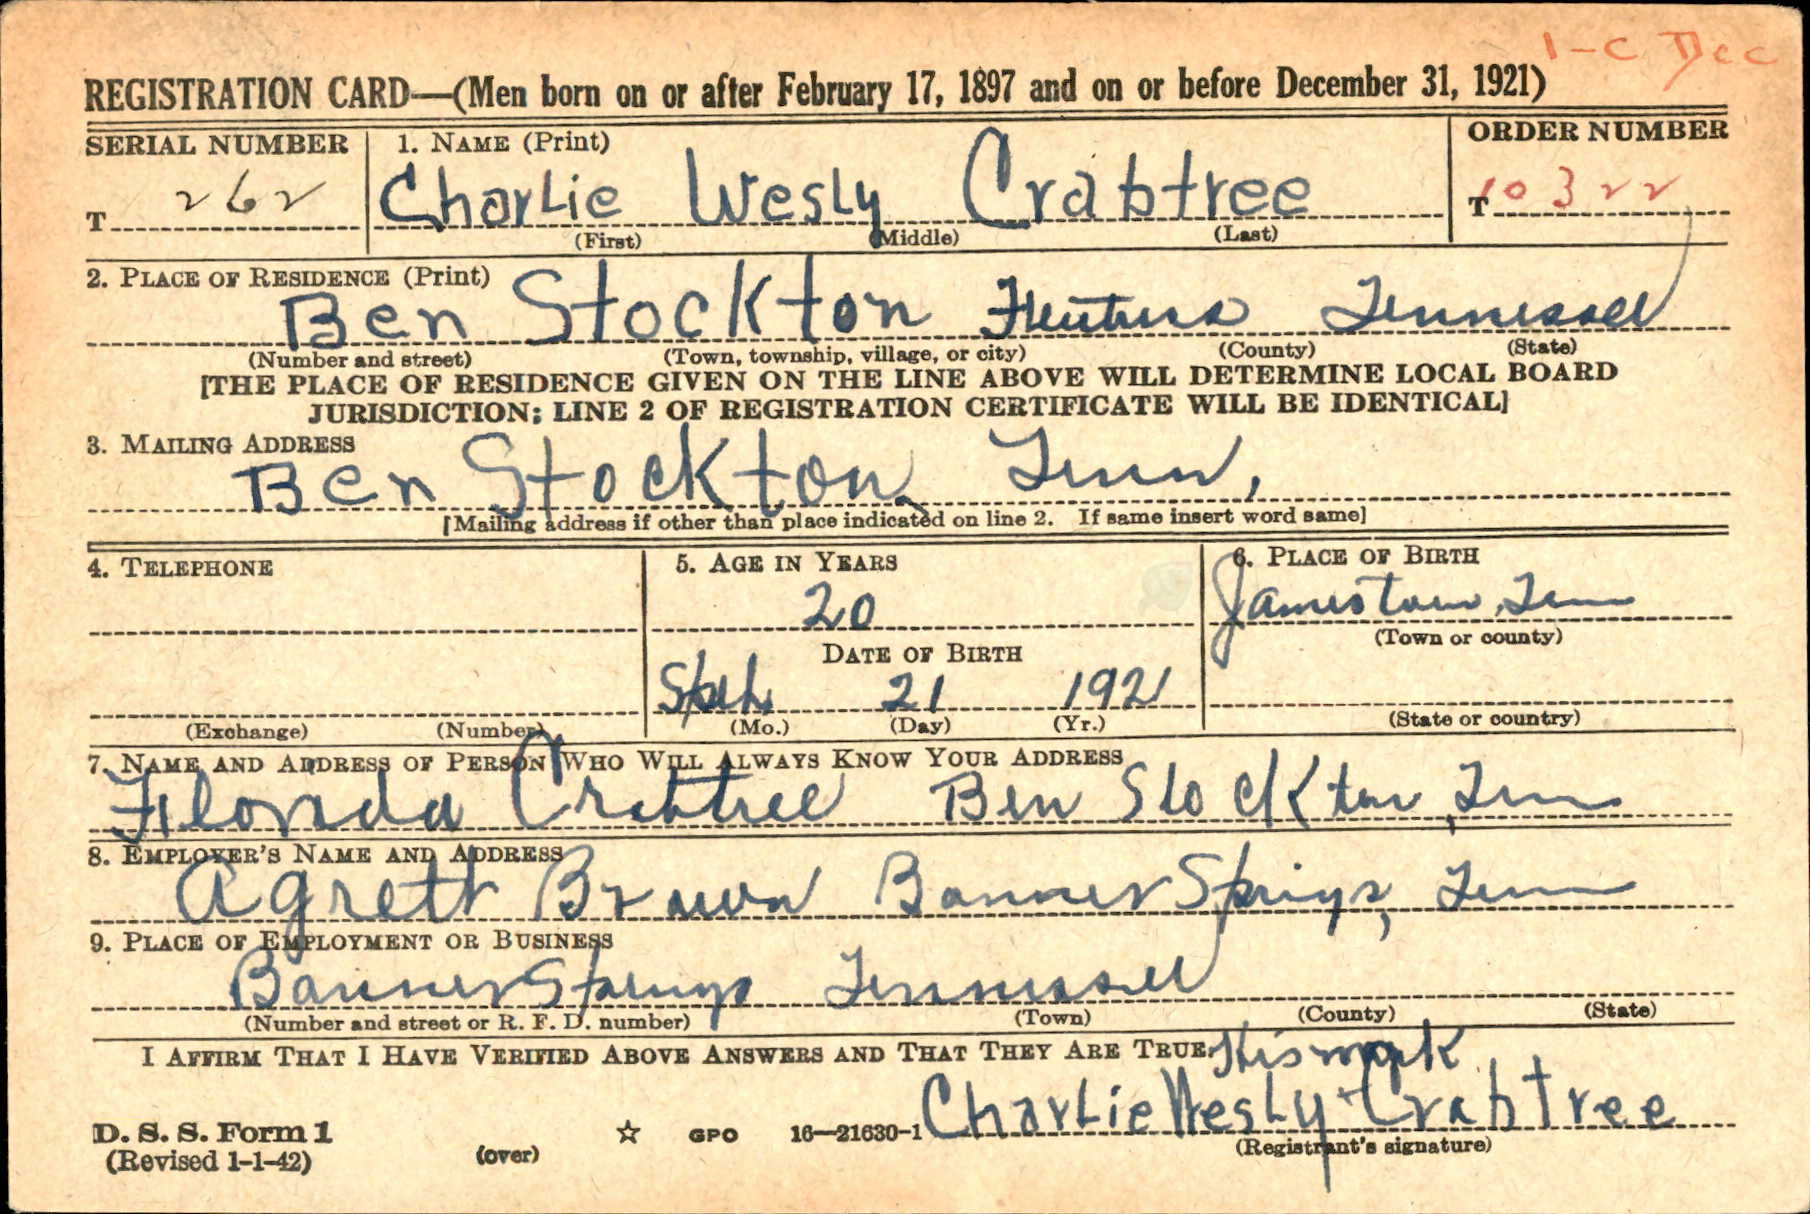 1-C Dec
REGISTRATION CARD—(Men born on or after February 17, 1897 and on or before December 31, 1921)
SERIAL NUMBER 1. NAME (Print) ORDER NUMBER
T 262 CharLie WesLy Crabtree T 10322
(First) (Middle) (Last)
2. PLACE OF RESIDENCE (Print)
Ben Stockton Fentress Tennessee
(Number and street) (Town, township, village, or city) (County) (State)
[THE PLACE OF RESIDENCE GIVEN ON THE LINE ABOVE WILL DETERMINE LOCAL BOARD
JURISDICTION; LINE 2 OF REGISTRATION CERTIFICATE WILL BE IDENTICAL]
3. MAILING ADDRESS
Ben Stockton, Tenn,
[Mailing address if other than place indicated on line 2. If same insert word same]
4. TELEPHONE 5. AGE IN YEARS 6. PLACE OF BIRTH
20 Jamestown, Tenn
(Town or county)
DATE OF BIRTH
21 1921
(Exchange) (Number) (Mo.) (Day) (Yr.) (State or country)
7. NAME AND ADDRESS OF PERSON WHO WILL ALWAYS KNOW YOUR ADDRESS
Florada Crabtree Ben Stockton, Tenn
8. EMPLOYER'S NAME AND ADDRESS
Agrett Brown Banner Springs, Tenn
9. PLACE OF EMPLOYMENT OR BUSINESS
Banner Springs Tennessee
(Number and street or R. F. D. number) (Town) (County) (State)
I AFFIRM THAT I HAVE VERIFIED ABOVE ANSWERS AND THAT THEY ARE TRUE.
His mark
CharLie WesLy Crabtree
D. S. S. Form 1 ☆ GPO 16—21630-1
(Revised 1-1-42) (over) (Registrant's signature)